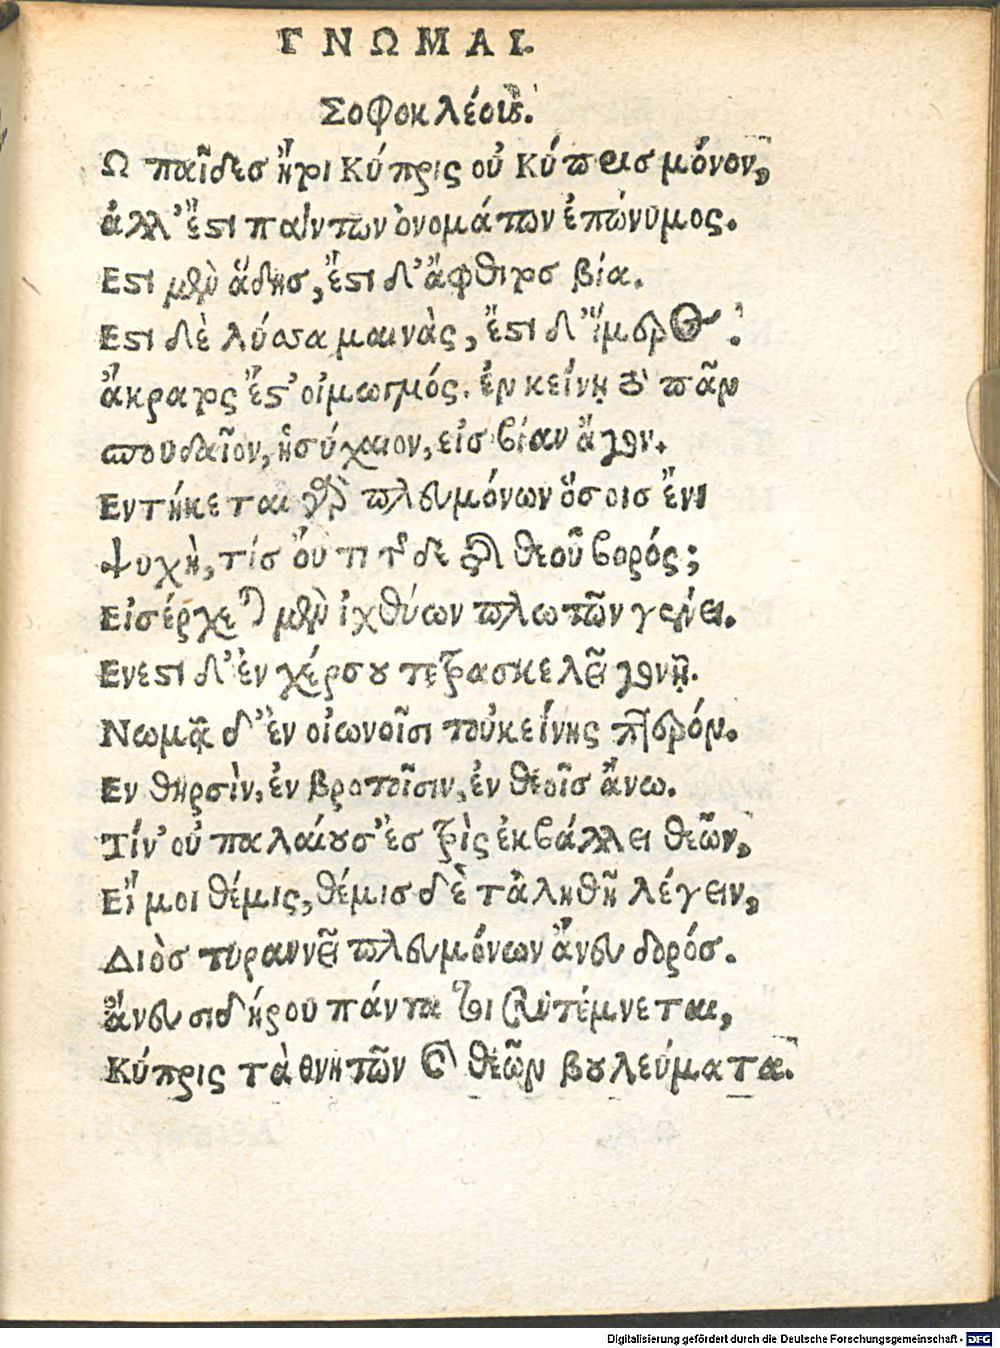 ΓΝΩΜΑΙ.
Σοφοκλέους.
Ω παῖδες ἤτοι Κύπρις οὐ Κύπρις μόνον,
ἀλλ' ἔστι πάντων ὀνομάτων ἐπώνυμος.
Εστι μὲν ᾅδης, ἔστι δ' ἄφθιτος βία.
Εστι δὲ λύσσα μαινὰς, ἔστι δ' ἵμερος
ἄκρατος ἔστ' οἰμωγμός. ἐν κείνῃ τὸ πᾶν
σπουδαῖον, ἡσύχαιον, εἰς βίαν ἄγον.
Εντήκεται γὰρ πλευμόνων ὅσοις ἔνι
ψυχὴ, τίς οὔ τι τῆς δε τοῦ θεοῦ βορός;
Εἰσέρχεται μὲν ἰχθύων πλωτῶν γένει.
Ενεστι δ' ἐν χέρσου τετρασκελεῖ γονῇ.
Νωμᾷ δ' ἐν οἰωνοῖσι τοὐκείνης πτερόν.
Εν θηρσὶν, ἐν βροτοῖσιν, ἐν θεοῖς ἄνω.
Τίν' οὐ παλαίουσ' ἐς τρὶς ἐκβάλλει θεῶν,
Εἴ μοι θέμις, θέμις δὲ τἀληθῆ λέγειν,
Διὸς τυραννεῖ πλευμόνων ἄνευ δορός.
ἄνευ σιδήρου πάντα τοι συντέμνεται,
Κύπρις τὰ θνητῶν καὶ θεῶν βουλεύματα.
Digitalisierung gefördert durch die Deutsche Forschungsgemeinschaft - DFG